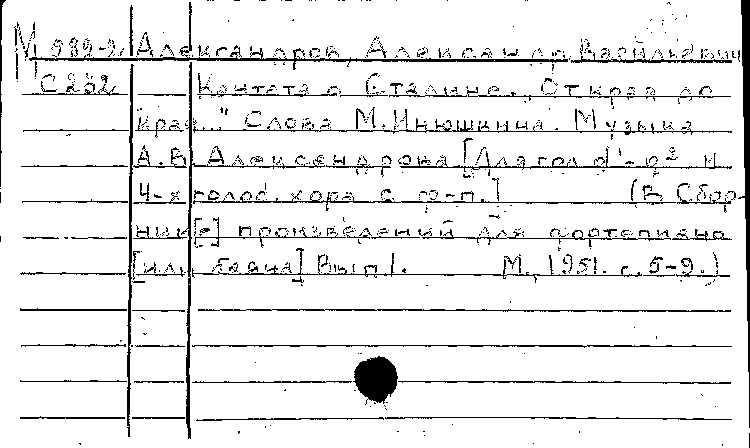 М 982-2 Александров, Александр Васильевич
С 232 Кантата о Сталине. „От края до
края..." Слова М. Инюшкина. Музыка
А.В. Александрова [Для гол. d'-g² и
4-х голос. хора с ф-п.] (В Сбор-
ник[е] произведений для фортепиано
[или баяна] Вып. 1. М., 1951. с. 5-9.)